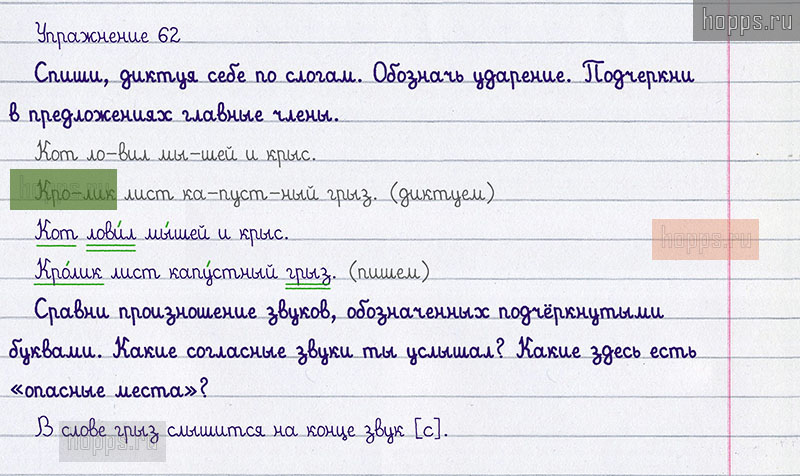 hopps.ru
Упражнение 62
Спиши, диктуя себе по слогам. Обозначь ударение. Подчеркни
в предложениях главные члены.
Кот ло-вил мы-шей и крыс.
Кро-лик лист ка-пуст-ный грыз. (диктуем)
Кот лови́л мы́шей и крыс.
hopps.ru
Кро́лик лист капу́стный грыз. (пишем)
Сравни произношение звуков, обозначенных подчёркнутыми
буквами. Какие согласные звуки ты услышал? Какие здесь есть
«опасные места»?
В слове грыз слышится на конце звук [с].
hopps.ru